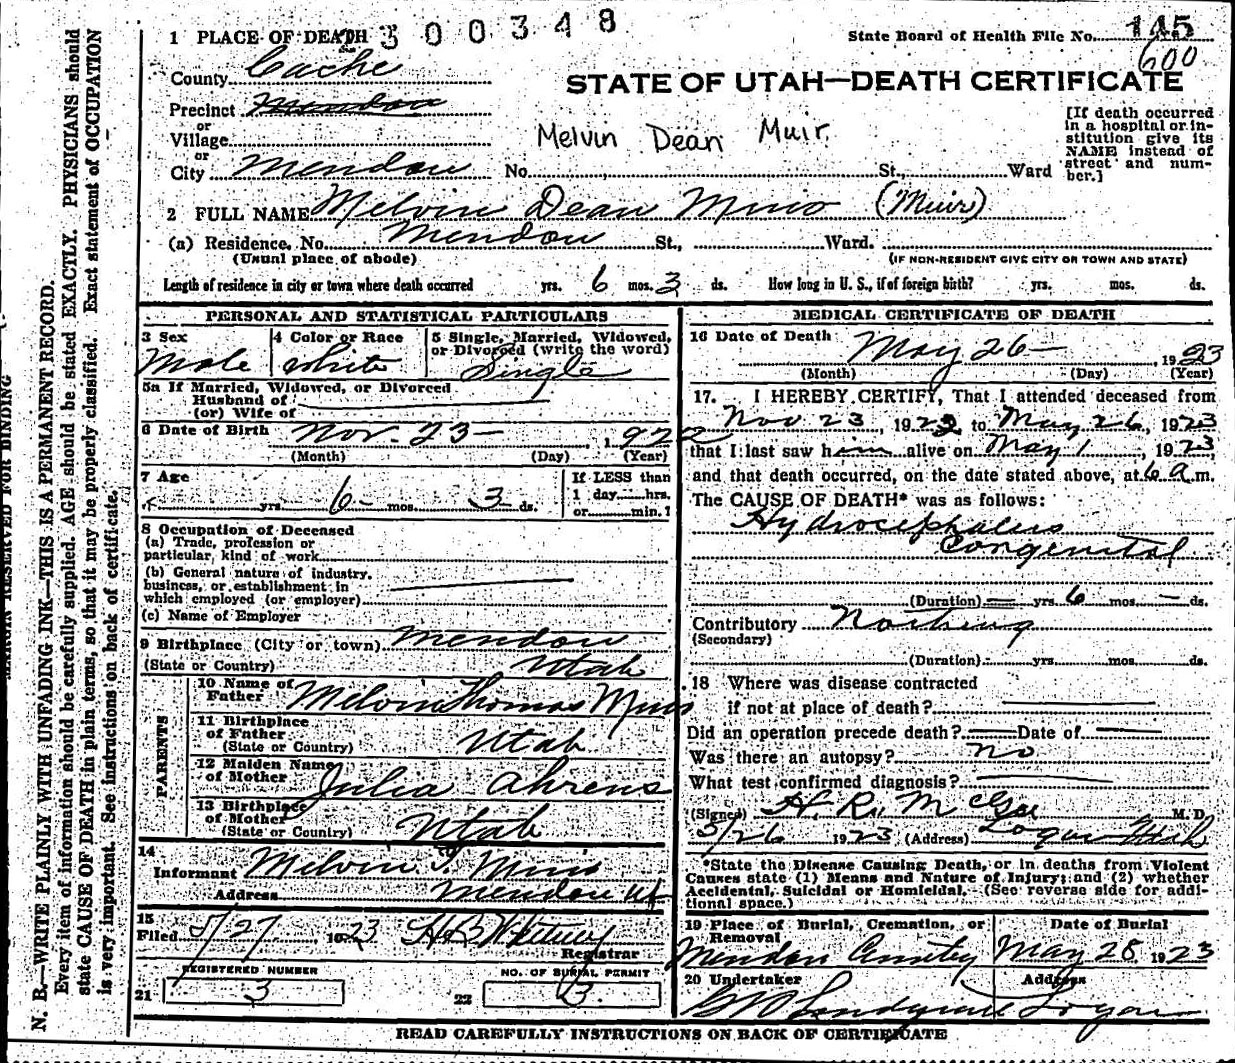 2300348
145
600
1 PLACE OF DEATH
State Board of Health File No. 
County Cache
STATE OF UTAH—DEATH CERTIFICATE
Precinct Mendon
or
Village
or
City Mendon No. St., Ward
Melvin Dean Muir
[If death occurred
in a hospital or in-
stitution give its
NAME instead of
street and num-
ber.]
2 FULL NAME Melvin Dean Muir (Muir)
(a) Residence. No. Mendon St., Ward.
(Usual place of abode) (IF NON-RESIDENT GIVE CITY OR TOWN AND STATE)
Length of residence in city or town where death occurred yrs. 6 mos. 3 ds. How long in U. S., if of foreign birth? yrs. mos. ds.
PERSONAL AND STATISTICAL PARTICULARS
3 Sex
Male
4 Color or Race
white
5 Single, Married, Widowed,
or Divorced (write the word)
Single
5a If Married, Widowed, or Divorced
Husband of
(or) Wife of
6 Date of Birth Nov. 23 1922
(Month) (Day) (Year)
7 Age
yrs. 6 mos. 3 ds.
If LESS than
1 day hrs.
or min.?
8 Occupation of Deceased
(a) Trade, profession or
particular, kind of work
(b) General nature of industry,
business, or establishment in
which employed (or employer)
(c) Name of Employer
9 Birthplace (City or town) Mendon
(State or Country) Utah
PARENTS
10 Name of
Father Melvin Thomas Muir
11 Birthplace
of Father
(State or Country) Utah
12 Maiden Name
of Mother Julia Ahrens
13 Birthplace
of Mother
(State or Country) Utah
14
Informant Melvin T. Muir
Address Mendon Ut
15
Filed 5/27, 1923 H B Whitney
Registrar
REGISTERED NUMBER
21 3
NO. OF BURIAL PERMIT
22 3
MEDICAL CERTIFICATE OF DEATH
16 Date of Death May 26 1923
(Month) (Day) (Year)
17. I HEREBY CERTIFY, That I attended deceased from
Nov 23, 1922 to May 26, 1923
that I last saw him alive on May 1, 1923,
and that death occurred, on the date stated above, at 6 a.m.
The CAUSE OF DEATH* was as follows:
Hydrocephalus
Congenital
(Duration) — yrs. 6 mos. — ds.
Contributory Nothing
(Secondary)
(Duration) yrs. mos. ds.
18 Where was disease contracted
if not at place of death?
Did an operation precede death? Date of
Was there an autopsy? no
What test confirmed diagnosis?
(Signed) H. R. McGee M. D.
5/26 1923 (Address) Logan Utah
*State the Disease Causing Death, or in deaths from Violent
Causes state (1) Means and Nature of Injury; and (2) whether
Accidental, Suicidal or Homicidal. (See reverse side for addi-
tional space.)
19 Place of Burial, Cremation, or
Removal
Mendon
Date of Burial
May 28 1923
20 Undertaker
Address
Logan
READ CAREFULLY INSTRUCTIONS ON BACK OF CERTIFICATE
MARGIN RESERVED FOR BINDING
N. B.—WRITE PLAINLY WITH UNFADING INK—THIS IS A PERMANENT RECORD.
Every item of information should be carefully supplied. AGE should be stated EXACTLY. PHYSICIANS should
state CAUSE OF DEATH in plain terms, so that it may be properly classified. Exact statement of OCCUPATION
is very important. See instructions on back of certificate.